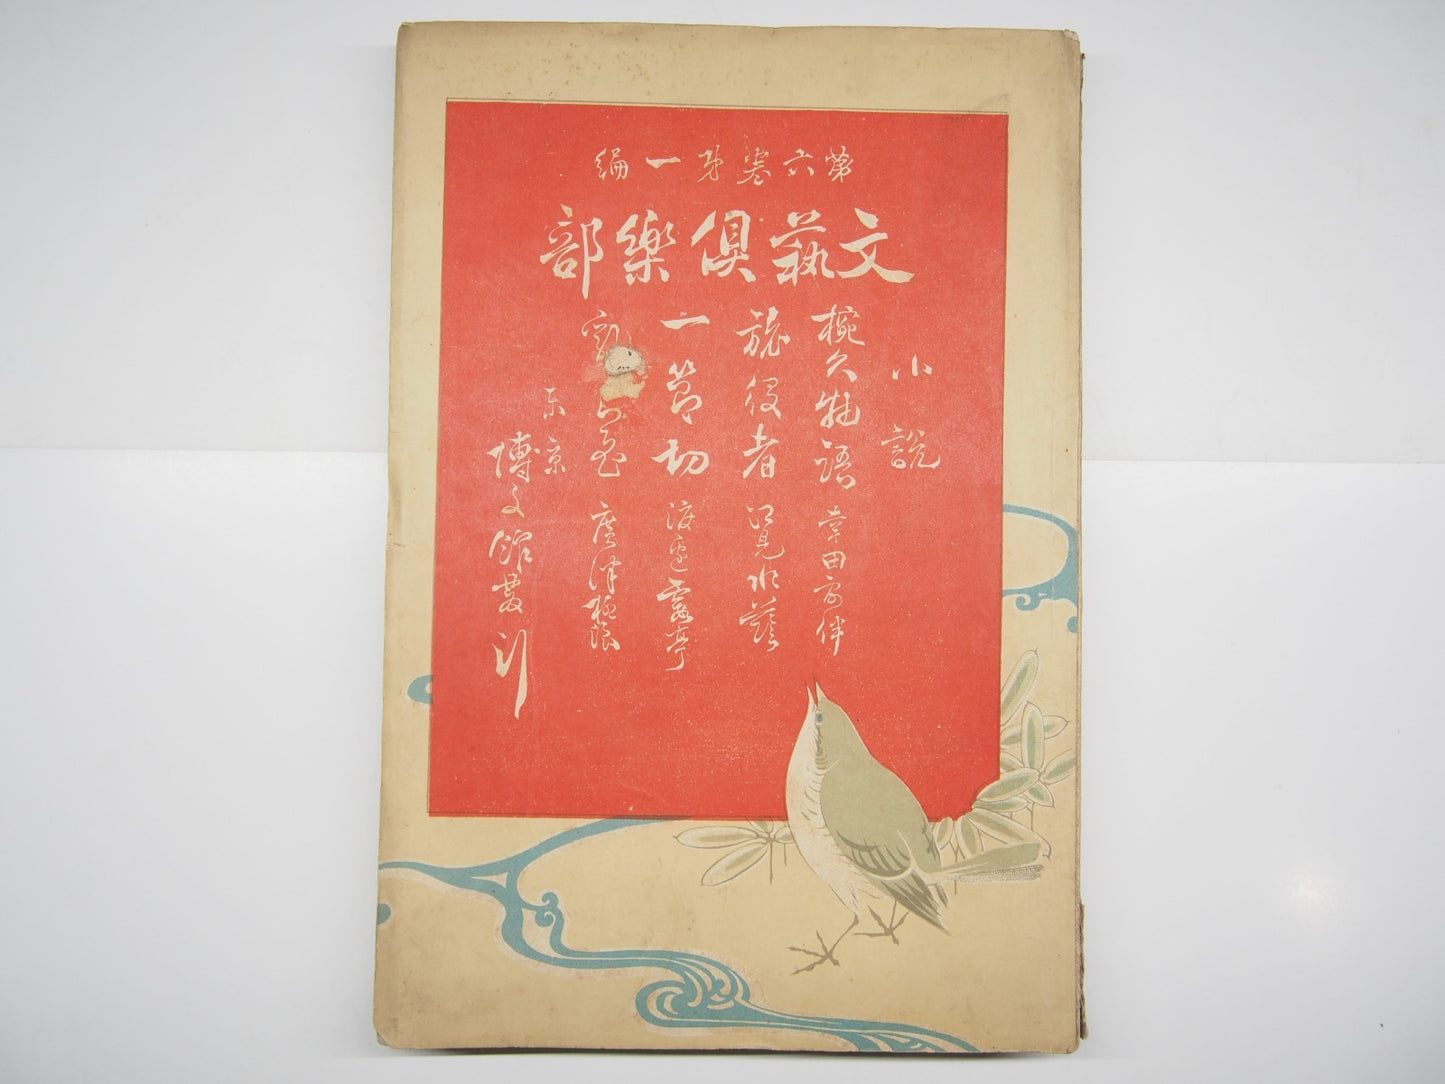 第六巻第一編
文藝倶楽部
小説
椀久物語 幸田露伴
旅役者 江見水蔭
一節切 渡辺霞亭
廣津柳浪
東京
博文館発行